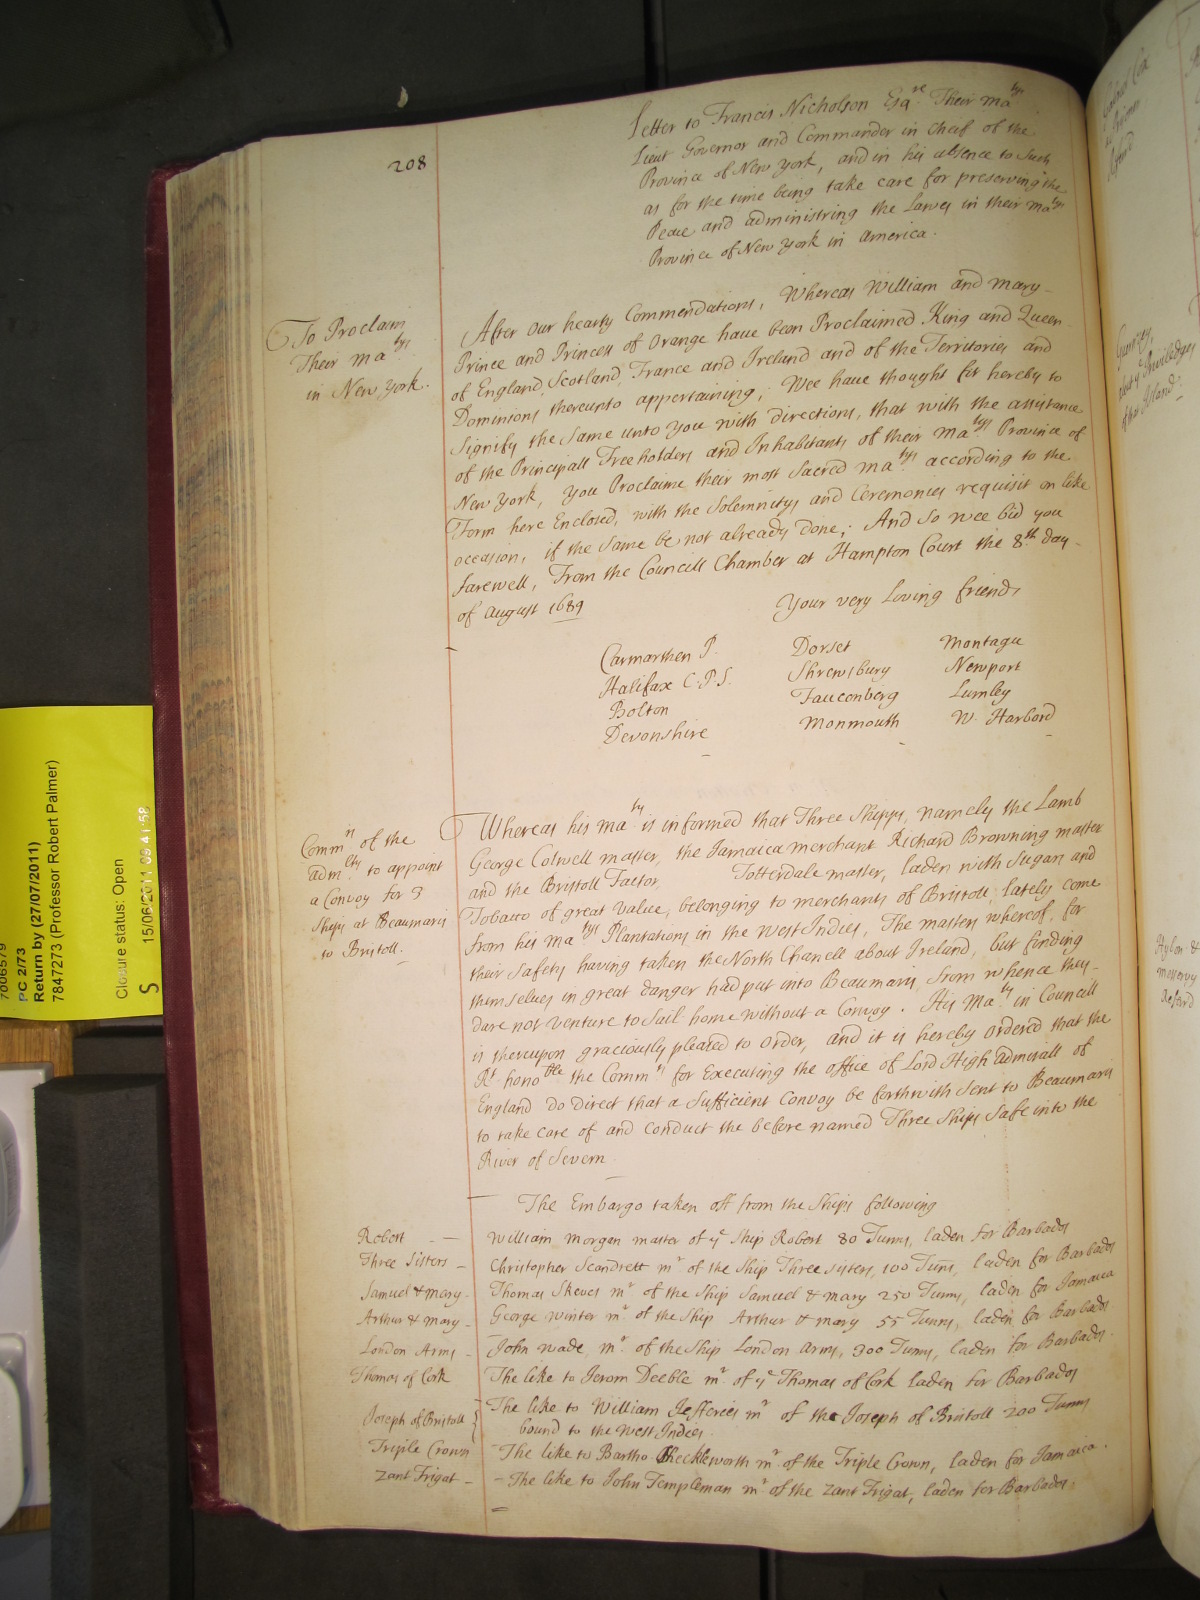 208
Letter to Francis Nicholson Esqre Their Matys
Lieut Governor and Commander in Cheif of the
Province of New York, and in his absence to such
as for the time being take care for preserving the
Peace and administring the Lawes in their Matys
Province of New York in America.
To Proclaim
Their Matys
in New York.
After our hearty Commendations, Whereas William and Mary
Prince and Princess of Orange have been Proclaimed King and Queen
of England, Scotland, France and Ireland and of the Territories and
Dominions thereunto appertaining; Wee have thought fit hereby to
Signify the same unto you with directions, that with the assistance
of the Principall Freeholders and Inhabitants of their Matys Province of
New York, you Proclaime their most Sacred Matys according to the
Form here Enclosed, with the Solemnitys and Ceremonies requisit on like
occasion, if the same be not already done; And so wee bid you
farewell, From the Councill Chamber at Hampton Court the 8th day
of August 1689
Your very Loving friends
Carmarthen P. Dorset Montagu
Halifax C.P.S. Shrewsbury Newport
Bolton Fauconberg Lumley
Devonshire Monmouth W. Harbord
Commrs of the
Admlty to appoint
a Convoy for 3
Ships at Beaumaris
to Bristoll.
Whereas his Maty is informed that Three Shipps, namely the Lamb
George Colwell master, the Jamaica merchant Richard Browning master
and the Bristoll Factor, Totterdale master, laden with Sugar and
Tobacco of great value, belonging to merchants of Bristoll, lately come
from his Matys Plantations in the West Indies, The masters whereof, for
their Safety having taken the North Chanell about Ireland, but finding
themselves in great danger had put into Beaumaris, from whence they
dare not venture to Sail home without a Convoy. His Maty in Councill
is thereupon graciously pleased to order, and it is hereby ordered that the
Rt honoble the Commrs for Executing the office of Lord High Admirall of
England Do Direct that a Sufficient Convoy be forthwith sent to Beaumaris
to take care of and Conduct the before named Three Ships Safe into the
River of Severn.
The Embargo taken off from the Ships following
Robert - William Morgan master of ye Ship Robert 80 Tunns, laden for Barbados
Three Sisters - Christopher Scandrett mr of the Ship Three sisters, 100 Tuns, laden for Barbados
Samuel & Mary - Thomas Skeves mr of the Ship Samuel & Mary 250 Tunns, laden for Jamaica
Arthur & Mary - George Winter mr of the Ship Arthur & Mary 55 Tunns, laden for Barbados.
London Arms - John Wade, mr of the Ship London Arms, 300 Tunns, laden for Barbados.
Thomas of Cork The like to Jerom Deeble mr of ye Thomas of Cork laden for Barbados
Joseph of Bristoll The like to William Jefferies mr of the Joseph of Bristoll 200 Tunns
bound to the West Indies.
Triple Crown - The like to Bartho Sheckleworth mr of the Triple Crown, laden for Jamaica.
Zant Frigat - The like to John Templeman mr of the Zant Frigat, laden for Barbados.
7006579
PC 2/73
Return by (27/07/2011)
7847273 (Professor Robert Palmer)
Closure status: Open
S 15/06/2011 09:41:58